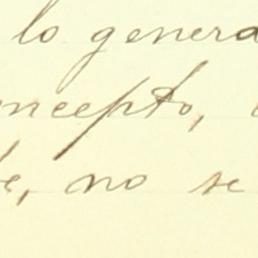 lo genera
ncepto,
te, no se